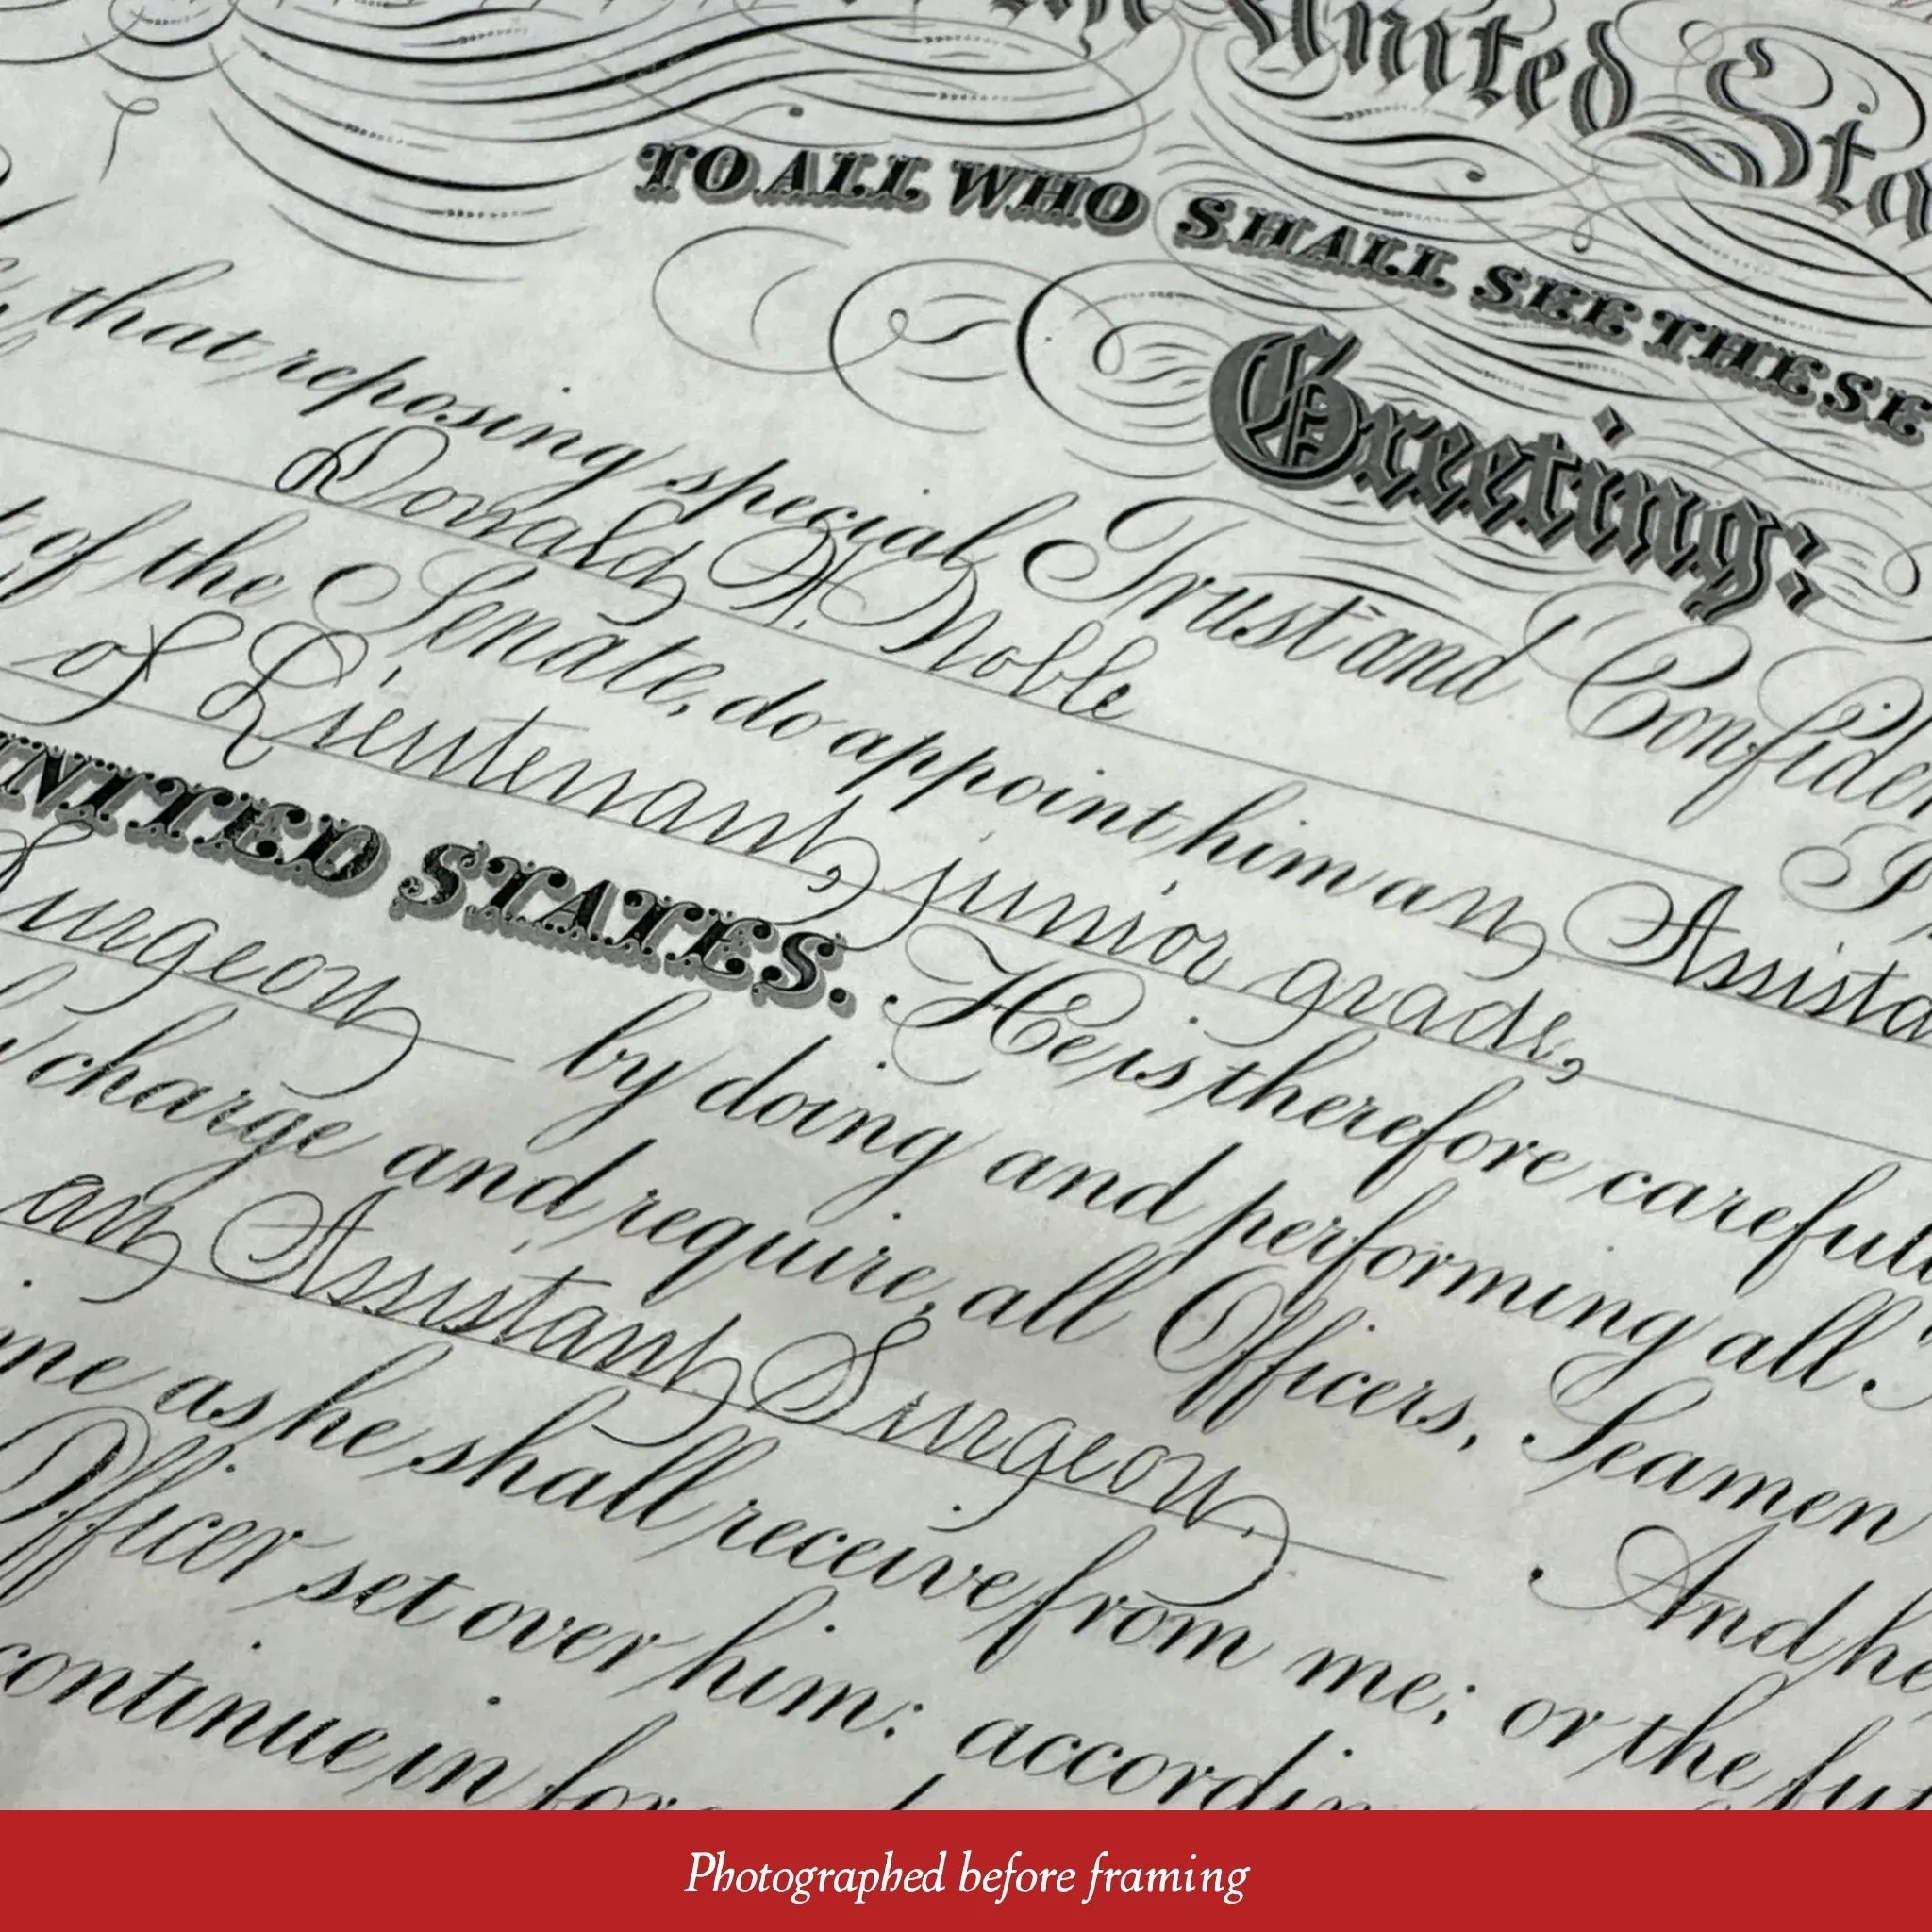 United Sta
TO ALL WHO SHALL SEE THESE
Greeting:
that reposing special Trust and Confiden
Donald A. Noble
of the Senate, do appoint him an Assista
of Lieutenant, junior grade,
NITED STATES. He is therefore careful
Surgeon by doing and performing all
charge and require all Officers, Seamen
an Assistant Surgeon. And he
me as he shall receive from me; or the fu
Officer set over him: accordin
continue in for
Photographed before framing